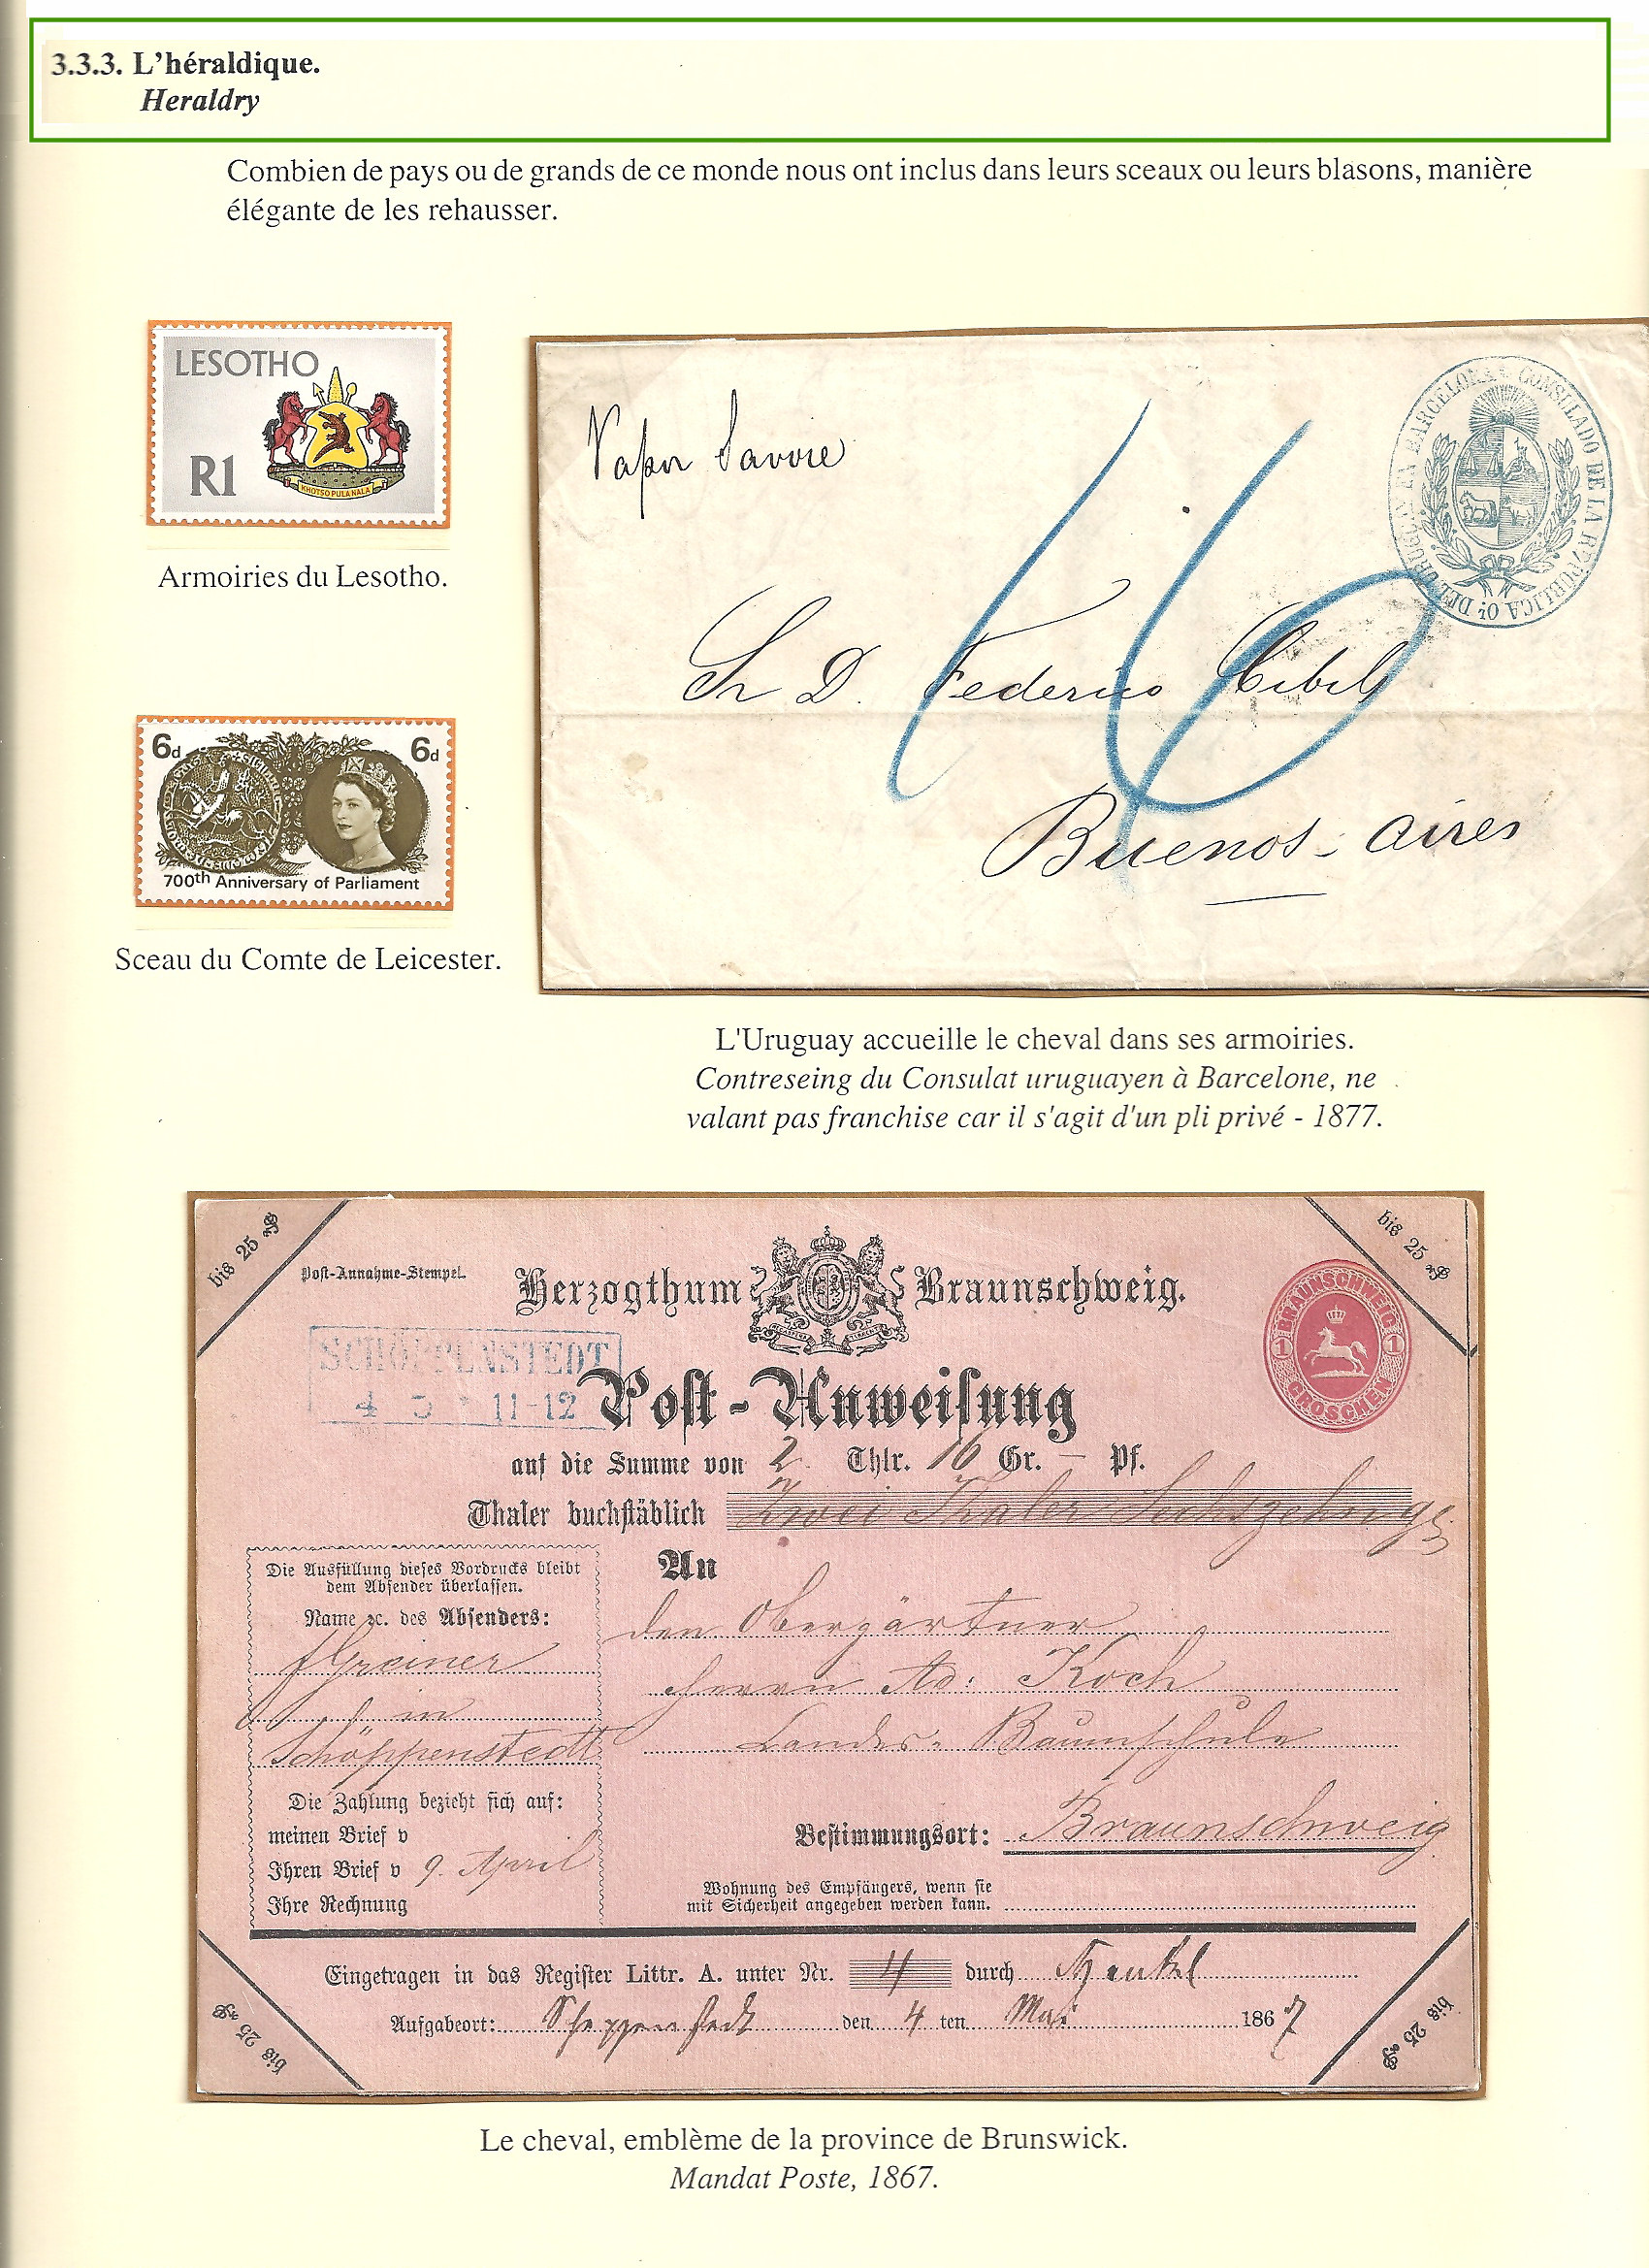 3.3.3. L'héraldique.
Heraldry
Combien de pays ou de grands de ce monde nous ont inclus dans leurs sceaux ou leurs blasons, manière
élégante de les rehausser.
LESOTHO
R1
KHOTSO PULA NALA
Armoiries du Lesotho.
6d 6d
700th Anniversary of Parliament
Sceau du Comte de Leicester.
Vapor Savoie
CONSULADO DE LA REPUBLICA OL DEL URUGUAY EN BARCELONA
16
Sr D. Federico Cibils
Buenos-aires
L'Uruguay accueille le cheval dans ses armoiries.
Contreseing du Consulat uruguayen à Barcelone, ne
valant pas franchise car il s'agit d'un pli privé - 1877.
bis 25
bis 25
Post-Annahme-Stempel.
Herzogthum Braunschweig.
BRAUNSCHWEIG
1 1
GROSCHEN
SCHÖPPENSTEDT
4 5 11-12
Post-Anweisung
auf die Summe von 2 Thlr. 16 Gr. — Pf.
Thaler buchstäblich Zwei Thaler Sechszehn gr
Die Ausfüllung dieses Vordrucks bleibt
dem Absender überlassen.
Name ꝛc. des Absenders:
Greiner
in
Schöppenstedt
An
den Obergärtner
Herrn Ad: Koch
Landes-Baumschule
Die Zahlung bezieht sich auf:
meinen Brief v
Ihren Brief v 9. April
Ihre Rechnung
Bestimmungsort: Braunschweig
Wohnung des Empfängers, wenn sie
mit Sicherheit angegeben werden kann.
Eingetragen in das Register Littr. A. unter Nr. 4 durch
Aufgabeort: Scheppenstedt den 4 ten Mai 1867
bis 25
bis 25
Le cheval, emblème de la province de Brunswick.
Mandat Poste, 1867.